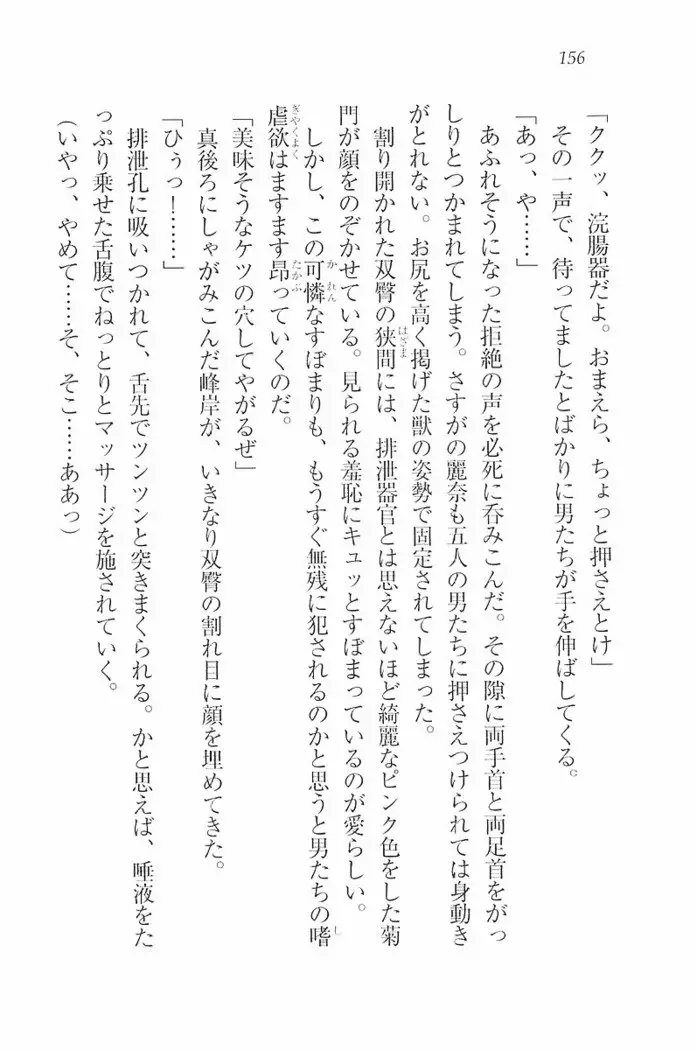 156
「ククッ、浣腸器だよ。おまえら、ちょっと押さえとけ」
その一声で、待ってましたとばかりに男たちが手を伸ばしてくる。
「あっ、や……」
あふれそうになった拒絶の声を必死に呑みこんだ。その隙に両手首と両足首をがっ
しりとつかまれてしまう。さすがの麗奈も五人の男たちに押さえつけられては身動き
がとれない。お尻を高く掲げた獣の姿勢で固定されてしまった。
割り開かれた双臀の狭間には、排泄器官とは思えないほど綺麗なピンク色をした菊
門が顔をのぞかせている。見られる羞恥にキュッとすぼまっているのが愛らしい。
しかし、この可憐なすぼまりも、もうすぐ無残に犯されるのかと思うと男たちの嗜
虐欲はますます昂っていくのだ。
「美味そうなケツの穴してやがるぜ」
真後ろにしゃがみこんだ峰岸が、いきなり双臀の割れ目に顔を埋めてきた。
「ひぅっ！……」
排泄孔に吸いつかれて、舌先でツンツンと突きまくられる。かと思えば、唾液をた
っぷり乗せた舌腹でねっとりとマッサージを施されていく。
（いやっ、やめて……そ、そこ……ああっ）